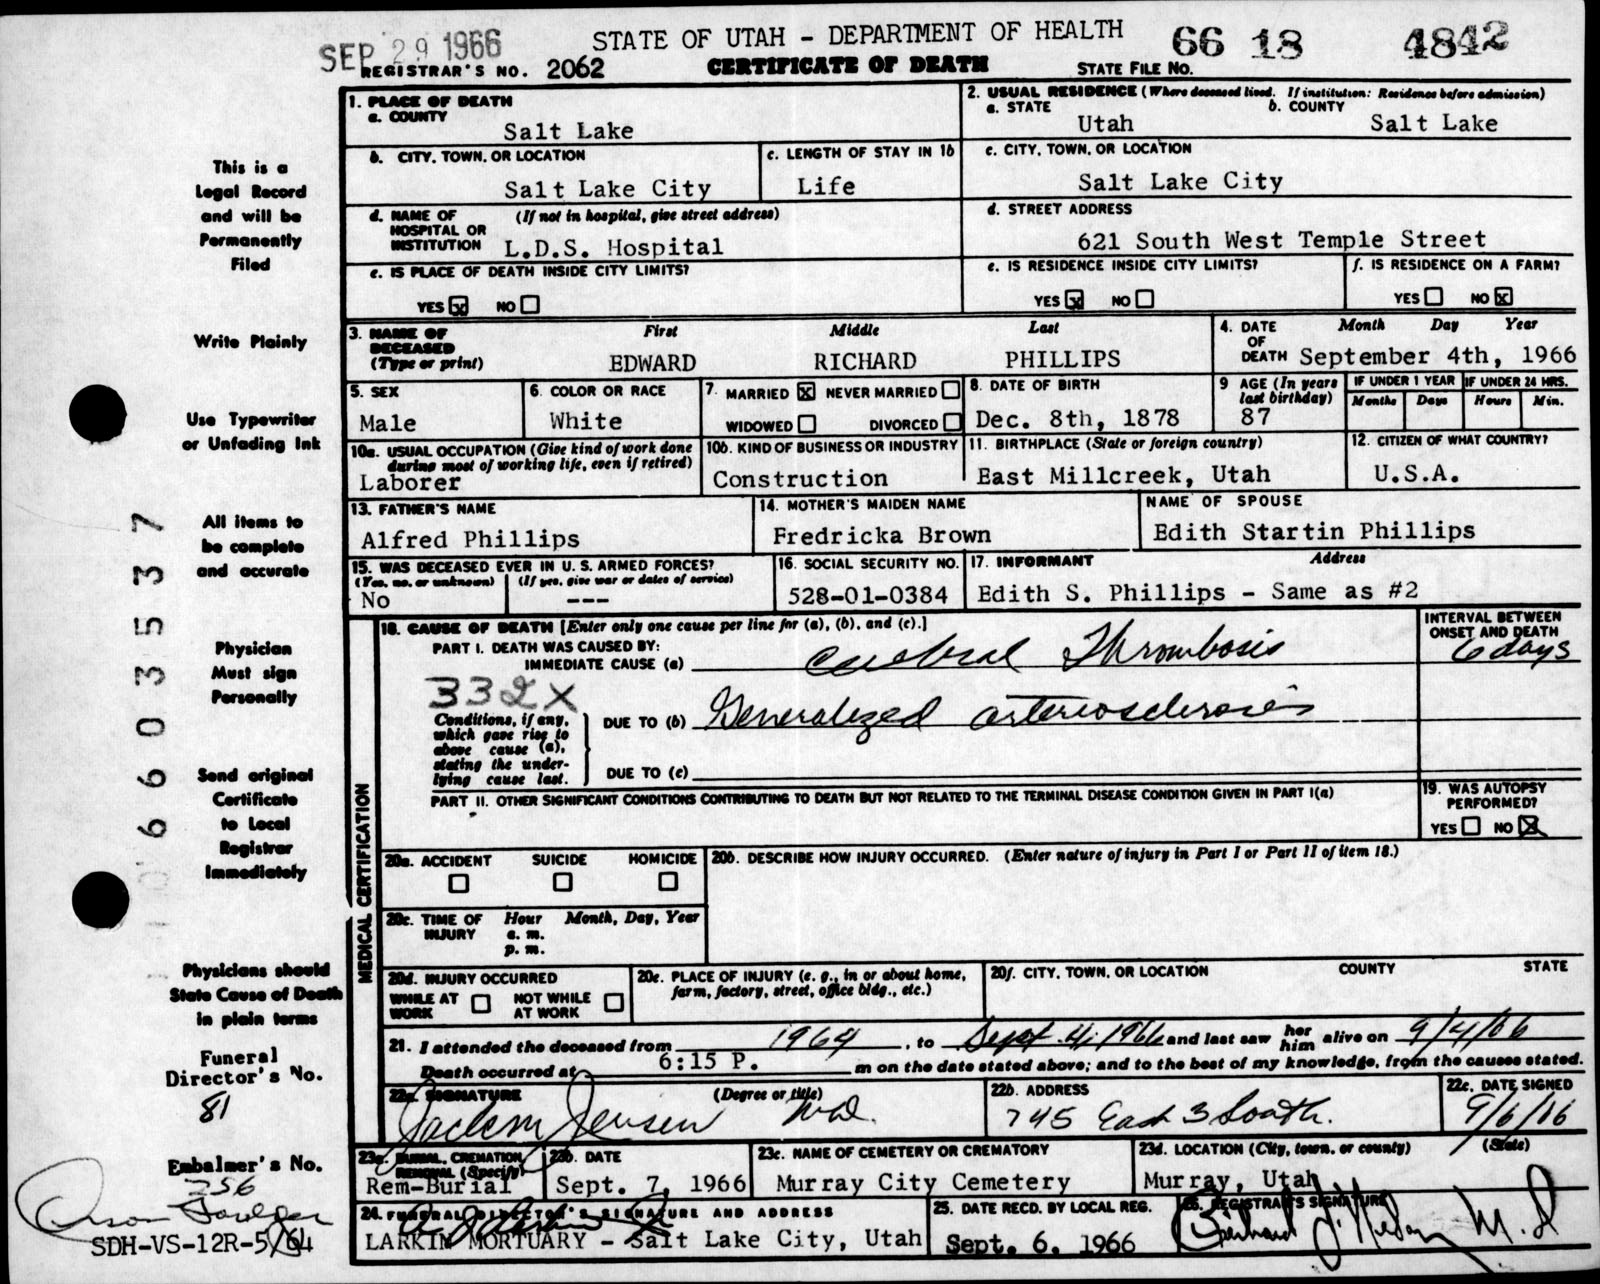 SEP 29 1966
STATE OF UTAH - DEPARTMENT OF HEALTH
66 18 4842
REGISTRAR'S NO. 2062
CERTIFICATE OF DEATH
STATE FILE NO.
This is a Legal Record and will be Permanently Filed
Write Plainly
Use Typewriter or Unfading Ink
All items to be complete and accurate
Physician Must sign Personally
Send original Certificate to Local Registrar Immediately
Physicians should State Cause of Death in plain terms
Funeral Director's No.
81
Embalmer's No.
256
SDH-VS-12R-5/64
6 6 0 3 5 5 3 7
1. PLACE OF DEATH
a. COUNTY
Salt Lake
2. USUAL RESIDENCE (Where deceased lived. If institution: Residence before admission)
a. STATE
Utah
b. COUNTY
Salt Lake
b. CITY, TOWN, OR LOCATION
Salt Lake City
c. LENGTH OF STAY IN 1b
Life
c. CITY, TOWN, OR LOCATION
Salt Lake City
d. NAME OF HOSPITAL OR INSTITUTION
(If not in hospital, give street address)
L.D.S. Hospital
d. STREET ADDRESS
621 South West Temple Street
e. IS PLACE OF DEATH INSIDE CITY LIMITS?
YES X NO
e. IS RESIDENCE INSIDE CITY LIMITS?
YES X NO
f. IS RESIDENCE ON A FARM?
YES NO X
3. NAME OF DECEASED (Type or print)
First Middle Last
EDWARD RICHARD PHILLIPS
4. DATE OF DEATH
Month Day Year
September 4th, 1966
5. SEX
Male
6. COLOR OR RACE
White
7. MARRIED X NEVER MARRIED
WIDOWED DIVORCED
8. DATE OF BIRTH
Dec. 8th, 1878
9 AGE (In years last birthday)
87
IF UNDER 1 YEAR
Months Days
IF UNDER 24 HRS.
Hours Min.
10a. USUAL OCCUPATION (Give kind of work done during most of working life, even if retired)
Laborer
10b. KIND OF BUSINESS OR INDUSTRY
Construction
11. BIRTHPLACE (State or foreign country)
East Millcreek, Utah
12. CITIZEN OF WHAT COUNTRY?
U.S.A.
13. FATHER'S NAME
Alfred Phillips
14. MOTHER'S MAIDEN NAME
Fredricka Brown
NAME OF SPOUSE
Edith Startin Phillips
15. WAS DECEASED EVER IN U.S. ARMED FORCES?
(Yes, no, or unknown) (If yes, give war or dates of service)
No ---
16. SOCIAL SECURITY NO.
528-01-0384
17. INFORMANT Address
Edith S. Phillips - Same as #2
MEDICAL CERTIFICATION
18. CAUSE OF DEATH [Enter only one cause per line for (a), (b), and (c).]
INTERVAL BETWEEN ONSET AND DEATH
PART I. DEATH WAS CAUSED BY:
IMMEDIATE CAUSE (a) Cerebral Thrombosis
6 days
332X
Conditions, if any, which gave rise to above cause (a), stating the underlying cause last.
DUE TO (b) Generalized arteriosclerosis
DUE TO (c)
PART II. OTHER SIGNIFICANT CONDITIONS CONTRIBUTING TO DEATH BUT NOT RELATED TO THE TERMINAL DISEASE CONDITION GIVEN IN PART I(a)
19. WAS AUTOPSY PERFORMED?
YES NO X
20a. ACCIDENT SUICIDE HOMICIDE
20b. DESCRIBE HOW INJURY OCCURRED. (Enter nature of injury in Part I or Part II of item 18.)
20c. TIME OF INJURY Hour Month, Day, Year
a. m.
p. m.
20d. INJURY OCCURRED
WHILE AT WORK NOT WHILE AT WORK
20e. PLACE OF INJURY (e. g., in or about home, farm, factory, street, office bldg., etc.)
20f. CITY, TOWN, OR LOCATION COUNTY STATE
21. I attended the deceased from 1964, to Sept. 4, 1966 and last saw her him alive on 9/4/66
Death occurred at 6:15 P. m on the date stated above; and to the best of my knowledge, from the causes stated.
22a. SIGNATURE (Degree or title)
Jensen MD.
22b. ADDRESS
745 East 3 South.
22c. DATE SIGNED
9/6/66
23a. BURIAL, CREMATION, REMOVAL (Specify)
Rem-Burial
23b. DATE
Sept. 7, 1966
23c. NAME OF CEMETERY OR CREMATORY
Murray City Cemetery
23d. LOCATION (City, town, or county) (State)
Murray, Utah
24. FUNERAL DIRECTOR'S SIGNATURE AND ADDRESS
LARKIN MORTUARY - Salt Lake City, Utah
25. DATE RECD. BY LOCAL REG.
Sept. 6, 1966
26. REGISTRAR'S SIGNATURE
M.D